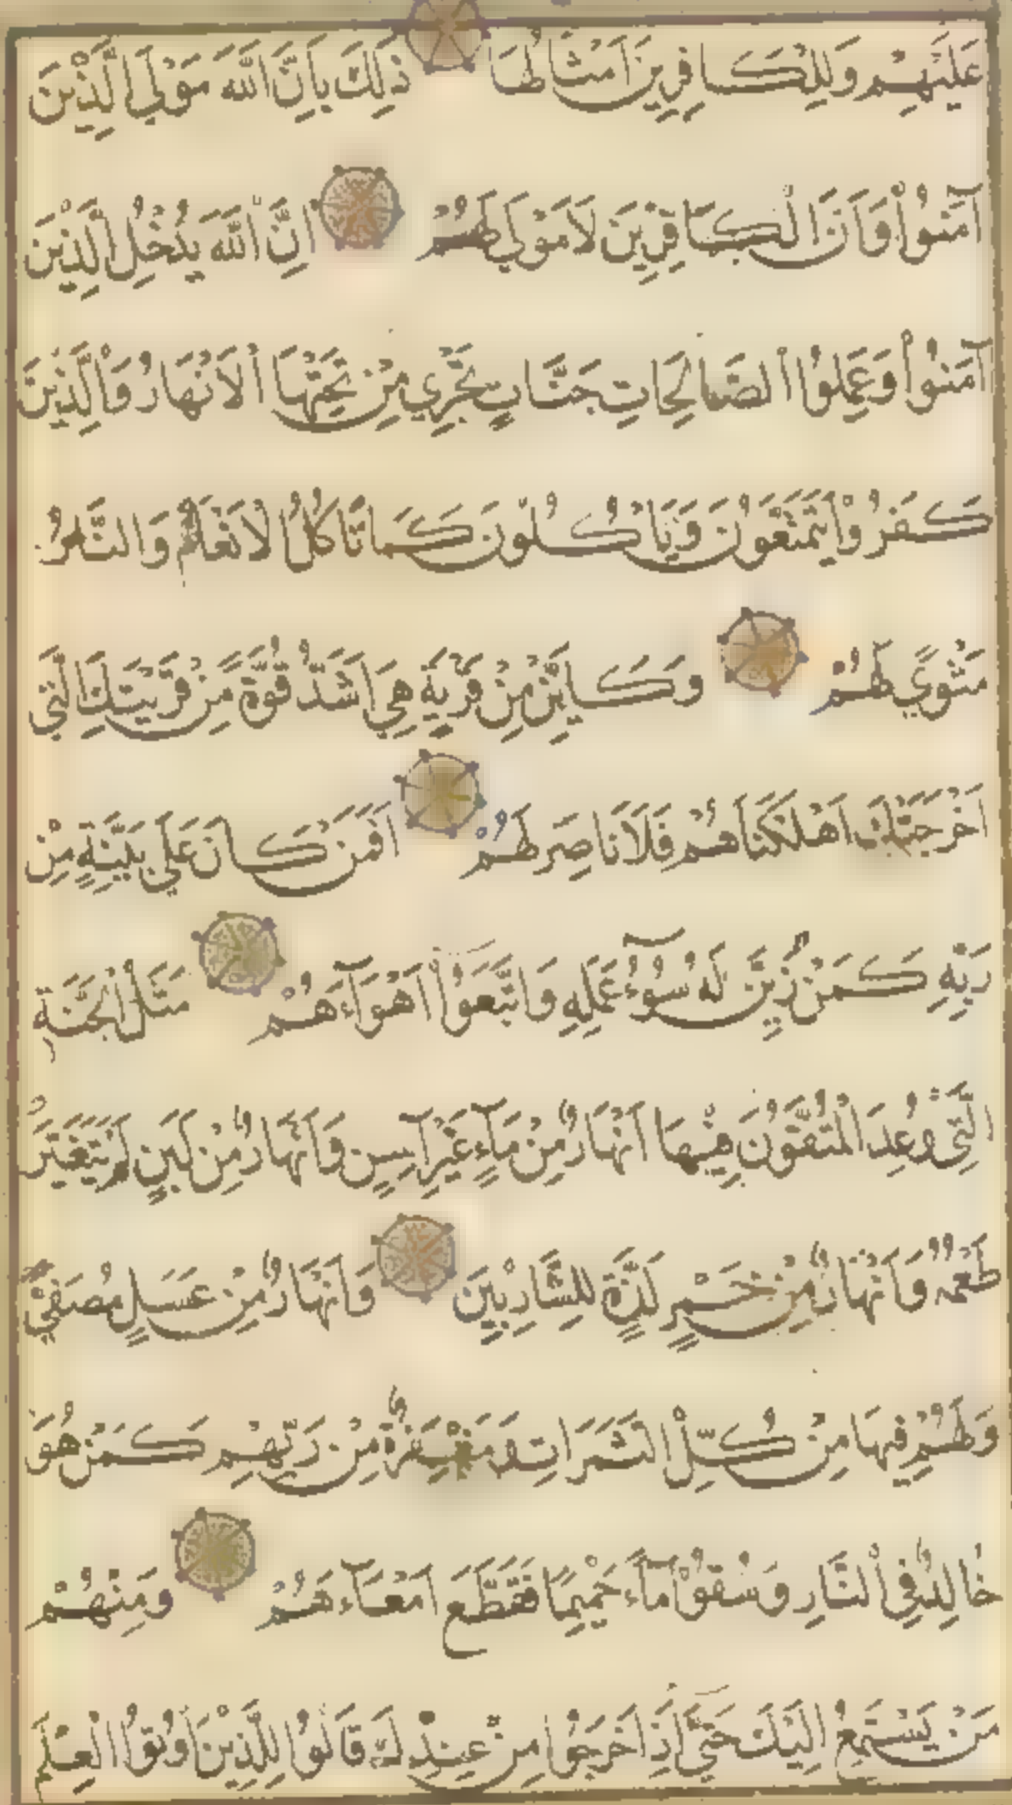 عَلَيْهِمْ وَلِلْكَافِرِينَ اَمْثَالُهَا ذٰلِكَ بِاَنَّ اللّٰهَ مَوْلَى الَّذِينَ
اٰمَنُوا وَاَنَّ الْكَافِرِينَ لَا مَوْلٰى لَهُمْ اِنَّ اللّٰهَ يُدْخِلُ الَّذِينَ
اٰمَنُوا وَعَمِلُوا الصَّالِحَاتِ جَنَّاتٍ تَجْرِي مِنْ تَحْتِهَا الْاَنْهَارُ وَالَّذِينَ
كَفَرُوا يَتَمَتَّعُونَ وَيَاْكُلُونَ كَمَا تَاْكُلُ الْاَنْعَامُ وَالنَّارُ
مَثْوًى لَهُمْ وَكَاَيِّنْ مِنْ قَرْيَةٍ هِيَ اَشَدُّ قُوَّةً مِنْ قَرْيَتِكَ الَّتِي
اَخْرَجَتْكَ اَهْلَكْنَاهُمْ فَلَا نَاصِرَ لَهُمْ اَفَمَنْ كَانَ عَلٰى بَيِّنَةٍ مِنْ
رَبِّهِ كَمَنْ زُيِّنَ لَهُ سُوٓءُ عَمَلِهِ وَاتَّبَعُوا اَهْوَآءَهُمْ مَثَلُ الْجَنَّةِ
الَّتِي وُعِدَ الْمُتَّقُونَ فِيهَا اَنْهَارٌ مِنْ مَآءٍ غَيْرِ اٰسِنٍ وَاَنْهَارٌ مِنْ لَبَنٍ لَمْ يَتَغَيَّرْ
طَعْمُهُ وَاَنْهَارٌ مِنْ خَمْرٍ لَذَّةٍ لِلشَّارِبِينَ وَاَنْهَارٌ مِنْ عَسَلٍ مُصَفًّى
وَلَهُمْ فِيهَا مِنْ كُلِّ الثَّمَرَاتِ وَمَغْفِرَةٌ مِنْ رَبِّهِمْ كَمَنْ هُوَ
خَالِدٌ فِي النَّارِ وَسُقُوا مَآءً حَمِيمًا فَقَطَّعَ اَمْعَآءَهُمْ وَمِنْهُمْ
مَنْ يَسْتَمِعُ اِلَيْكَ حَتّٰى اِذَا خَرَجُوا مِنْ عِنْدِكَ قَالُوا لِلَّذِينَ اُوتُوا الْعِلْمَ